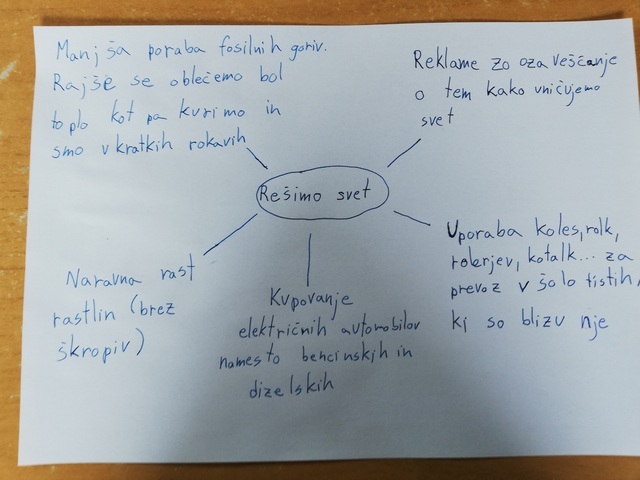 Manjša poraba fosilnih goriv.
Rajše se oblečemo bol
toplo kot pa kurimo in
smo v kratkih rokavih
Reklame zo ozaveščanje
o tem kako uničujemo
svet
Rešimo svet
Naravna rast
rastlin (brez
škropiv)
Kupovanje
električnih automobilov
namesto bencinskih in
dizelskih
Uporaba koles, rolk,
rolerjev, kotalk... za
prevoz v šolo tistih,
ki so blizu nje